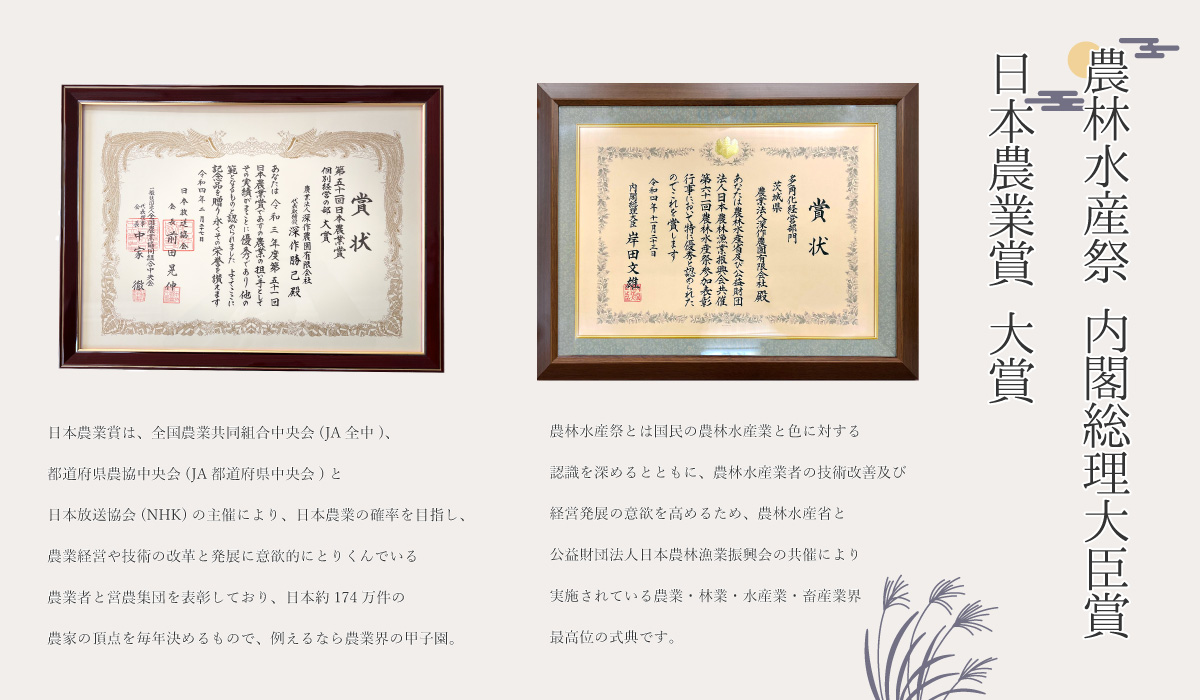 農林水産祭 内閣総理大臣賞
日本農業賞 大賞
賞状
多角化経営部門
茨城県
農業法人深作農園有限会社 殿
あなたは農林水産省及び公益財団
法人日本農林漁業振興会共催
第六十一回農林水産祭参加表彰
行事において特に優秀と認められた
のでこれを賞します
令和四年十一月二十三日
内閣総理大臣 岸田文雄
賞状
第五十一回日本農業賞
個別経営の部 大賞
農業法人深作農園有限会社
代表取締役 深作勝己殿
あなたは令和三年度第五十一回
日本農業賞であすの農業の担い手として
その実績がまことに優秀であり他の
範となるものと認められました よってここに
記念品を贈り永くその栄誉を讃えます
令和四年三月五七日
日本放送協会
会長 前田晃伸
一般社団法人全国農業協同組合中央会
代表理事会長 中家徹
農林水産祭とは国民の農林水産業と色に対する
認識を深めるとともに、農林水産業者の技術改善及び
経営発展の意欲を高めるため、農林水産省と
公益財団法人日本農林漁業振興会の共催により
実施されている農業・林業・水産業・畜産業界
最高位の式典です。
日本農業賞は、全国農業共同組合中央会 (JA 全中 )、
都道府県農協中央会 (JA 都道府県中央会 ) と
日本放送協会 (NHK) の主催により、日本農業の確率を目指し、
農業経営や技術の改革と発展に意欲的にとりくんでいる
農業者と営農集団を表彰しており、日本約 174 万件の
農家の頂点を毎年決めるもので、例えるなら農業界の甲子園。